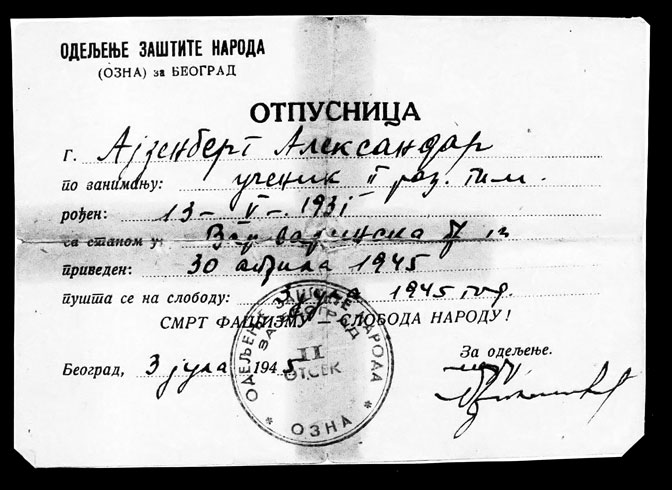 ОДЕЉЕЊЕ ЗАШТИТЕ НАРОДА
(ОЗНА) за БЕОГРАД
ОТПУСНИЦА
Г. Ајзенберг Александар
по занимању: ученик II раз. гим.
рођен: 13-V-1931
са станом у:
приведен: 30 априла 1945
пушта се на слободу: 3 јула 1945 год.
СМРТ ФАШИЗМУ – СЛОБОДА НАРОДУ!
За одељење.
Београд, 3 јула 1945
ОДЕЉЕЊЕ ЗАШТИТЕ НАРОДА
ЗА БЕОГРАД
II
ОТСЕК
* ОЗНА *